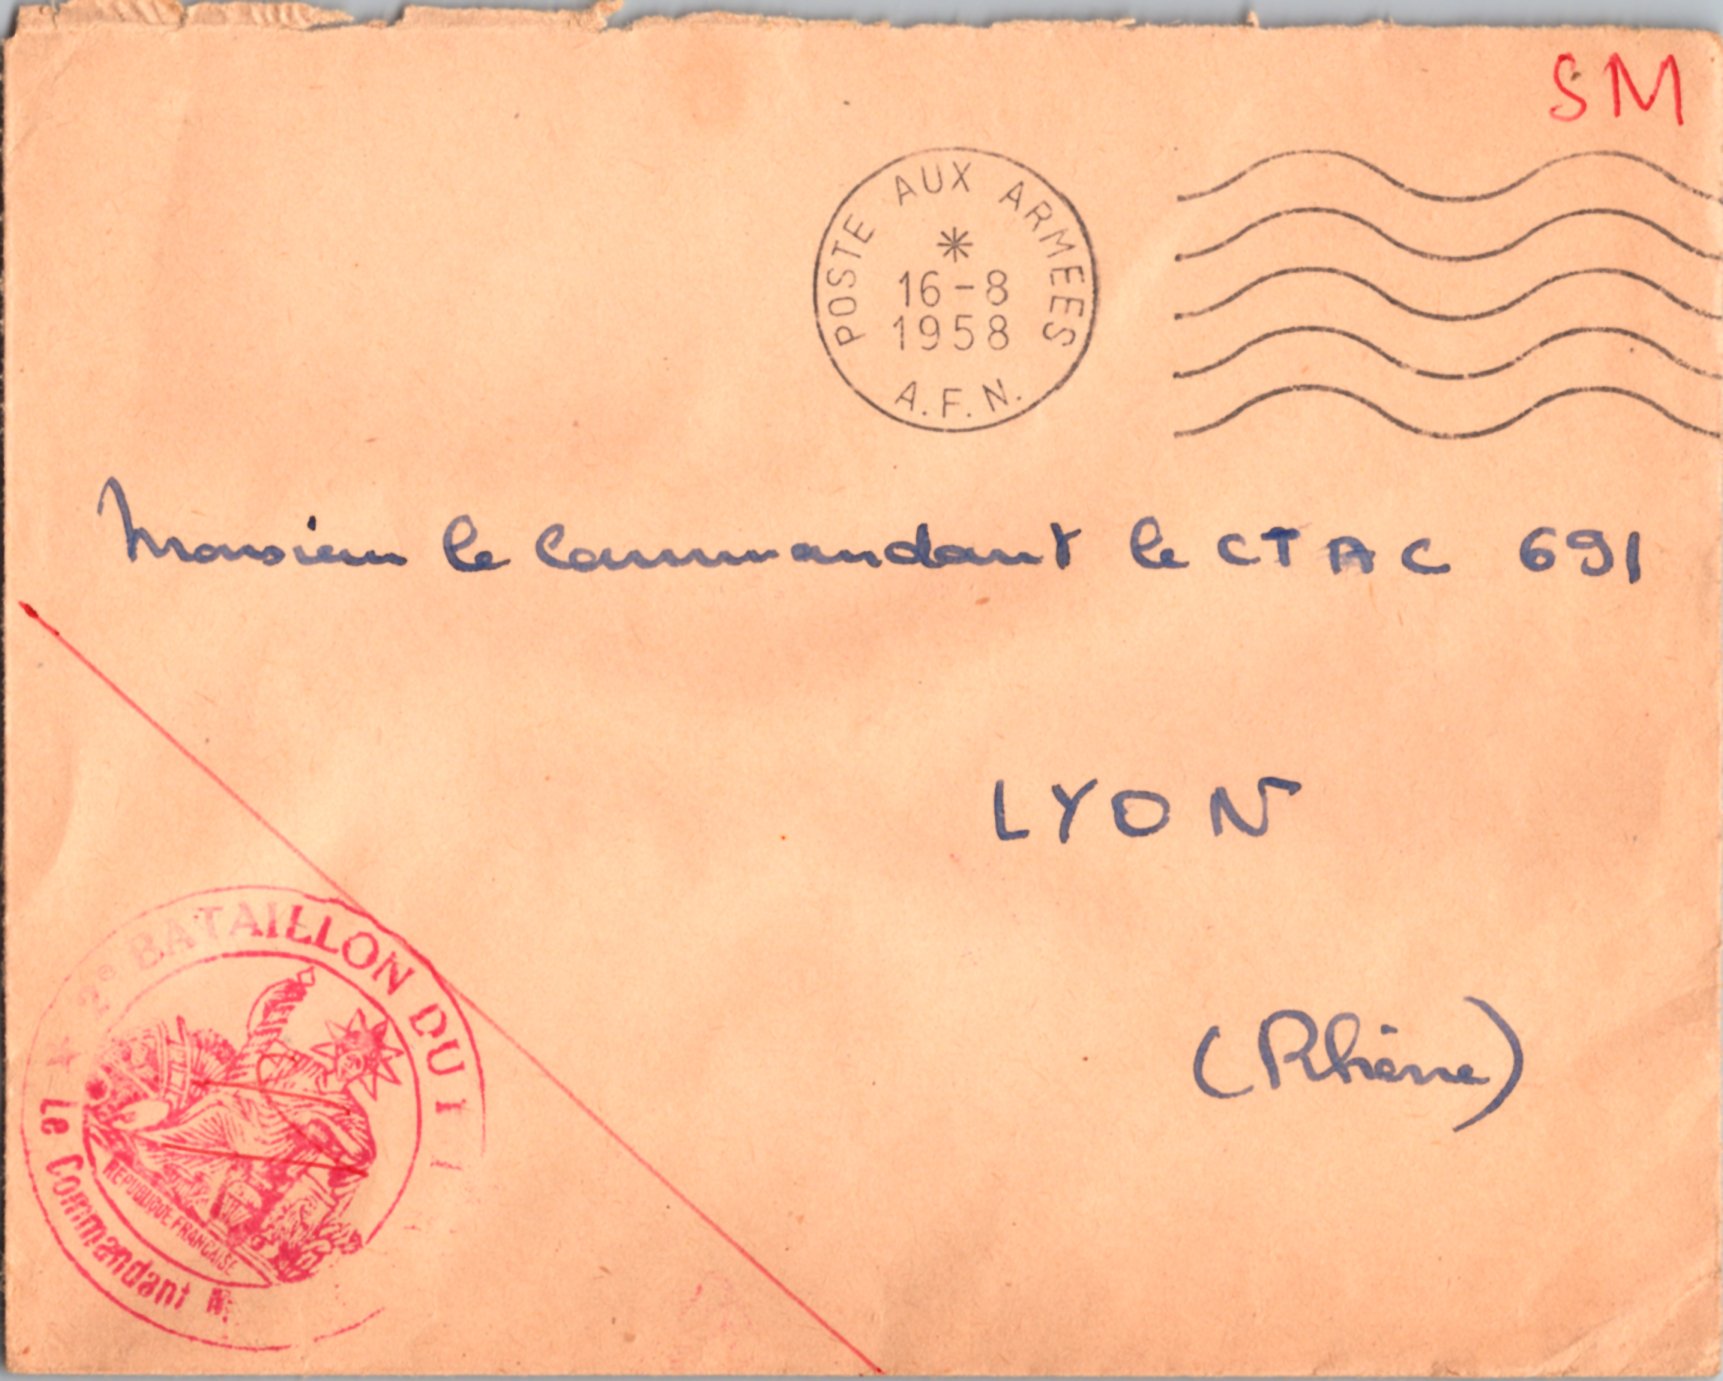 SM
POSTE AUX ARMEES
16-8
1958
A.F.N.
Monsieur le Commandant le CTAC 691
LYON
(Rhône)
2e BATAILLON DU
REPUBLIQUE FRANCAISE
Le Commandant